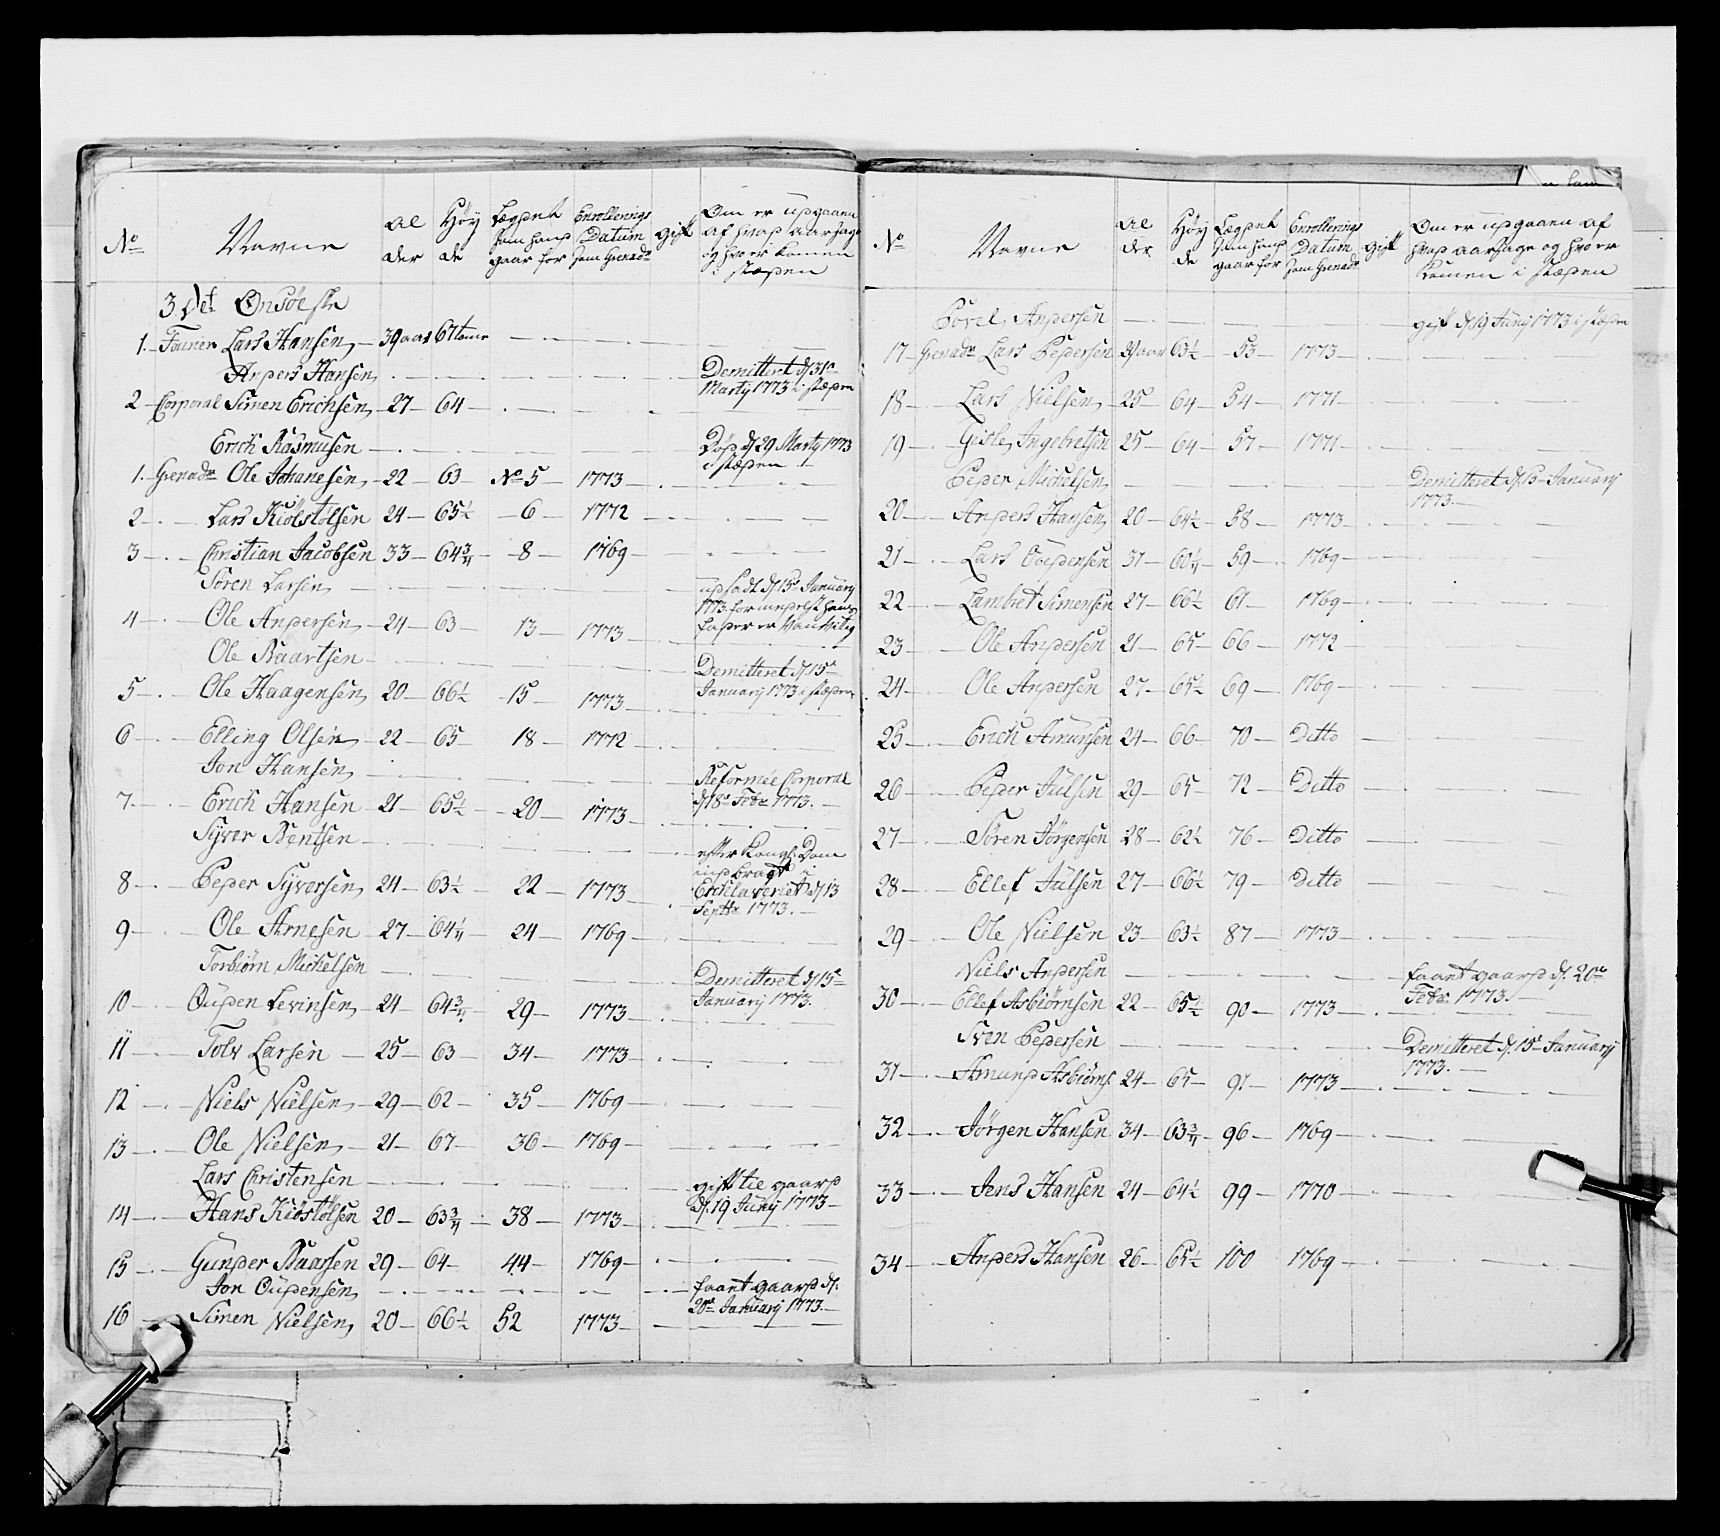 No Navne Alder Høyde Lægdet som hand gaar for Enrollerings Datum som Grenadr gift Om er udgaaen af hvad aarsage og hvo er komen i stæden
3det Onsøeske
1. Fourier Lars Hansen 39 aar 67 tome
Anders Hansen Demitteret d 31e Marty 1773 i stæden
2 Corporal Simen Erichsen 27 64
Erich Rasmusen Døde d 29 Marty 1773 i stæden
1. Grenadr Ole Johanesen 22 63 No 5 1773
2 Lars Kiølstølsen 24 65½ 6 1772
3 Christian Jacobsen 33 64¾ 8 1769
Søren Larsen udsadt d 15e January 1773 formedelst hans fader er Vanvitig
4 Ole Andersen 24 63 13 1773
Ole Baartsen Demitteret d 15e January 1773 i stæden
5 Ole Haagensen 20 66½ 15 1773
6 Elling Olsen 22 65 18 1772
Jon Hansen Reformee Corporal d 18e Febr 1773.
7 Erich Hansen 21 65½ 20 1773
Syver Bentsen efter Kongl: Dom indbragt i Schlaveriet d 13 Septbr 1773.
8 Peder Syversen 24 63½ 22 1773
9 Ole Arnesen 27 64¼ 24 1769
Torbiørn Michelsen Demitteret d 15e January 1773.
10 Ouden Levinsen 24 64¾ 29 1773
11 Tolv Larsen 25 63 34 1773
12 Niels Nielsen 29 62 35 1769
13 Ole Nielsen 21 67 36 1769
Lars Christensen gift til gaard d. 19 Juny 1773
14 Hans Kiøstølsen 20 63¾ 38 1773
15 Gunder Baarsen 29 64 44 1769
Jon Oudensen faaet gaard d. 20e January 1773.
16 Simen Nielsen 20 66½ 52 1773
No Navne Alder Høyde Lægdet som hand gaar for Enrollerings Datum som Grenadr gift Om er udgaaen af hvad aarsage og hvo er komen i stæden
Povel Andersen gift d. 19 Juny 1773 i stæden
17 Grenadr Lars Pedersen aar 63½ 53 1773
18 Lars Nielsen 25 64 54 1771
19 Gisle Ingebretsen 25 64 57 1771
Peder Michelsen Demitteret d. 15 January 1773.
20 Anders Hansen 20 64½ 58 1773
21 Lars 31 60¼ 59 1769
22 Lambret Simensen 27 66½ 61 1769
23 Ole Andersen 21 65 66 1772
24 Ole Andersen 27 65½ 69 1769
25 Erich Amunsen 24 66 70 Ditto
26 Peder Julsen 29 65 72 Ditto
27 Søren Jørgensen 28 62½ 76 Ditto
28 Ellef Julsen 27 66½ 79 Ditto
29 Ole Nielsen 23 63½ 87 1773
Niels Andersen faaet gaard d. 20de Febr 1773.
30 Ellef Asbiørnsen 22 65½ 90 1773
Sven Pedersen Demitteret d. 15e January 1773.
31 Amund Asbiørns 24 65 91 1773
32 Jørgen Hansen 34 63¾ 96 1769
33 Jens Hansen 24 64½ 99 1770
34 Anders Hansen 26 65½ 100 1769